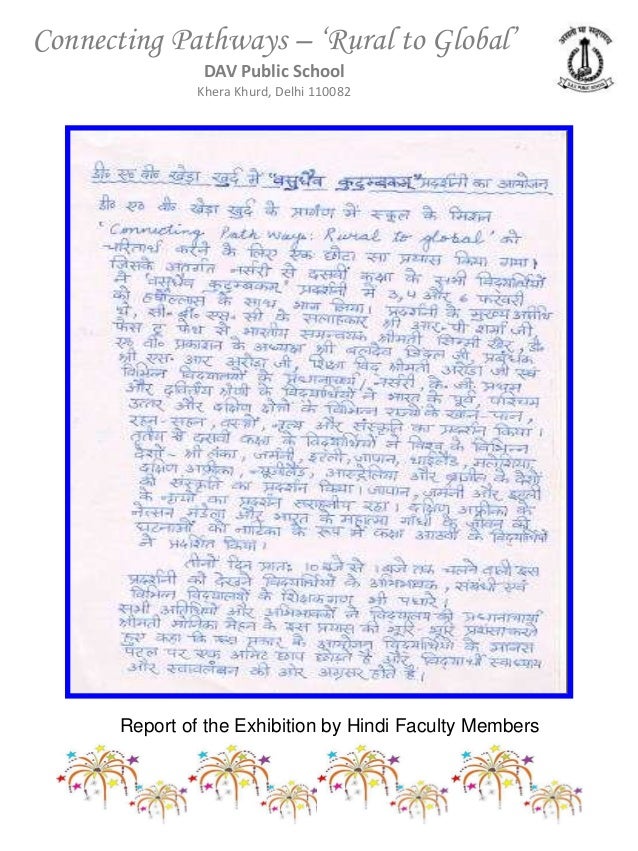 Connecting Pathways – ‘Rural to Global’
DAV Public School
Khera Khurd, Delhi 110082
असतो मा सद्गमय
D.A.V. PUBLIC SCHOOL
डी० ए० वी० खेड़ा खुर्द में "वसुधैव कुटुम्बकम्" प्रदर्शनी का आयोजन
डी० ए० वी० खेड़ा खुर्द के प्रांगण में स्कूल के मिशन
'Connecting Path Ways: Rural to global' को
चरितार्थ करने के लिए एक छोटा सा प्रयास किया गया।
जिसके अंतर्गत नर्सरी से दसवीं कक्षा के सभी विद्यार्थियों
ने 'वसुधैव कुटुम्बकम्' प्रदर्शनी में 3, 4 और 6 फरवरी
को हर्षोल्लास के साथ भाग लिया। प्रदर्शनी के मुख्य अतिथि
थे, सी० बी० एस० सी के सलाहकार श्री आर० पी शर्मा जी,
फेस टू फेथ से भारतीय समन्वयक श्रीमती सिम्मी खेर, डी०
ए० वी० प्रकाशन के अध्यक्ष श्री बलदेव जिंदल जी, प्रबंधक
श्री एस० आर अरोड़ा जी, शिक्षा विद् श्रीमती अरोड़ा जी एवं
विभिन्न विद्यालयों के प्रधानाचार्य। नर्सरी, के० जी, प्रथम
और द्वितीय श्रेणी के विद्यार्थियों ने भारत के पूर्व, पश्चिम
उत्तर और दक्षिण क्षेत्रों के विभिन्न राज्यों के खान-पान,
रहन-सहन, वस्त्रों, नृत्य और संस्कृति का प्रदर्शन किया।
तृतीय से दसवीं कक्षा के विद्यार्थियों ने विश्व के विभिन्न
देशों - श्री लंका, जर्मनी, इटली, जापान, थाइलैंड, मलेशिया,
दक्षिण अफ्रीका, न्यूजीलैंड, आस्ट्रेलिया और ब्राजील के देशों
की संस्कृति का प्रदर्शन किया। जापान, जर्मनी और इटली
के नृत्यों का प्रदर्शन सराहनीय रहा। दक्षिण अफ्रीका के
नेल्सन मंडेला और भारत के महात्मा गांधी के जीवन की
घटनाओं को नाटिका के रूप में कक्षा आठवीं के विद्यार्थियों
ने प्रदर्शित किया।
तीनों दिन प्रातः 10 बजे से 1 बजे तक चलने वाली इस
प्रदर्शनी को देखने विद्यार्थियों के अभिभावक, संबंधी एवं
विभिन्न विद्यालयों के शिक्षकगण भी पधारे।
सभी अतिथियों और अभिभावकों ने विद्यालय की प्रधानाचार्या
श्रीमती मोनिका मेहन के इस प्रयास की भूरि-भूरि प्रशंसा करते
हुए कहा कि इस प्रकार के आयोजन विद्यार्थियों के मानस
पटल पर एक अमिट छाप छोड़ते हैं और विद्यार्थी स्वाध्याय
और स्वावलंबन की ओर अग्रसर होते हैं।
Report of the Exhibition by Hindi Faculty Members